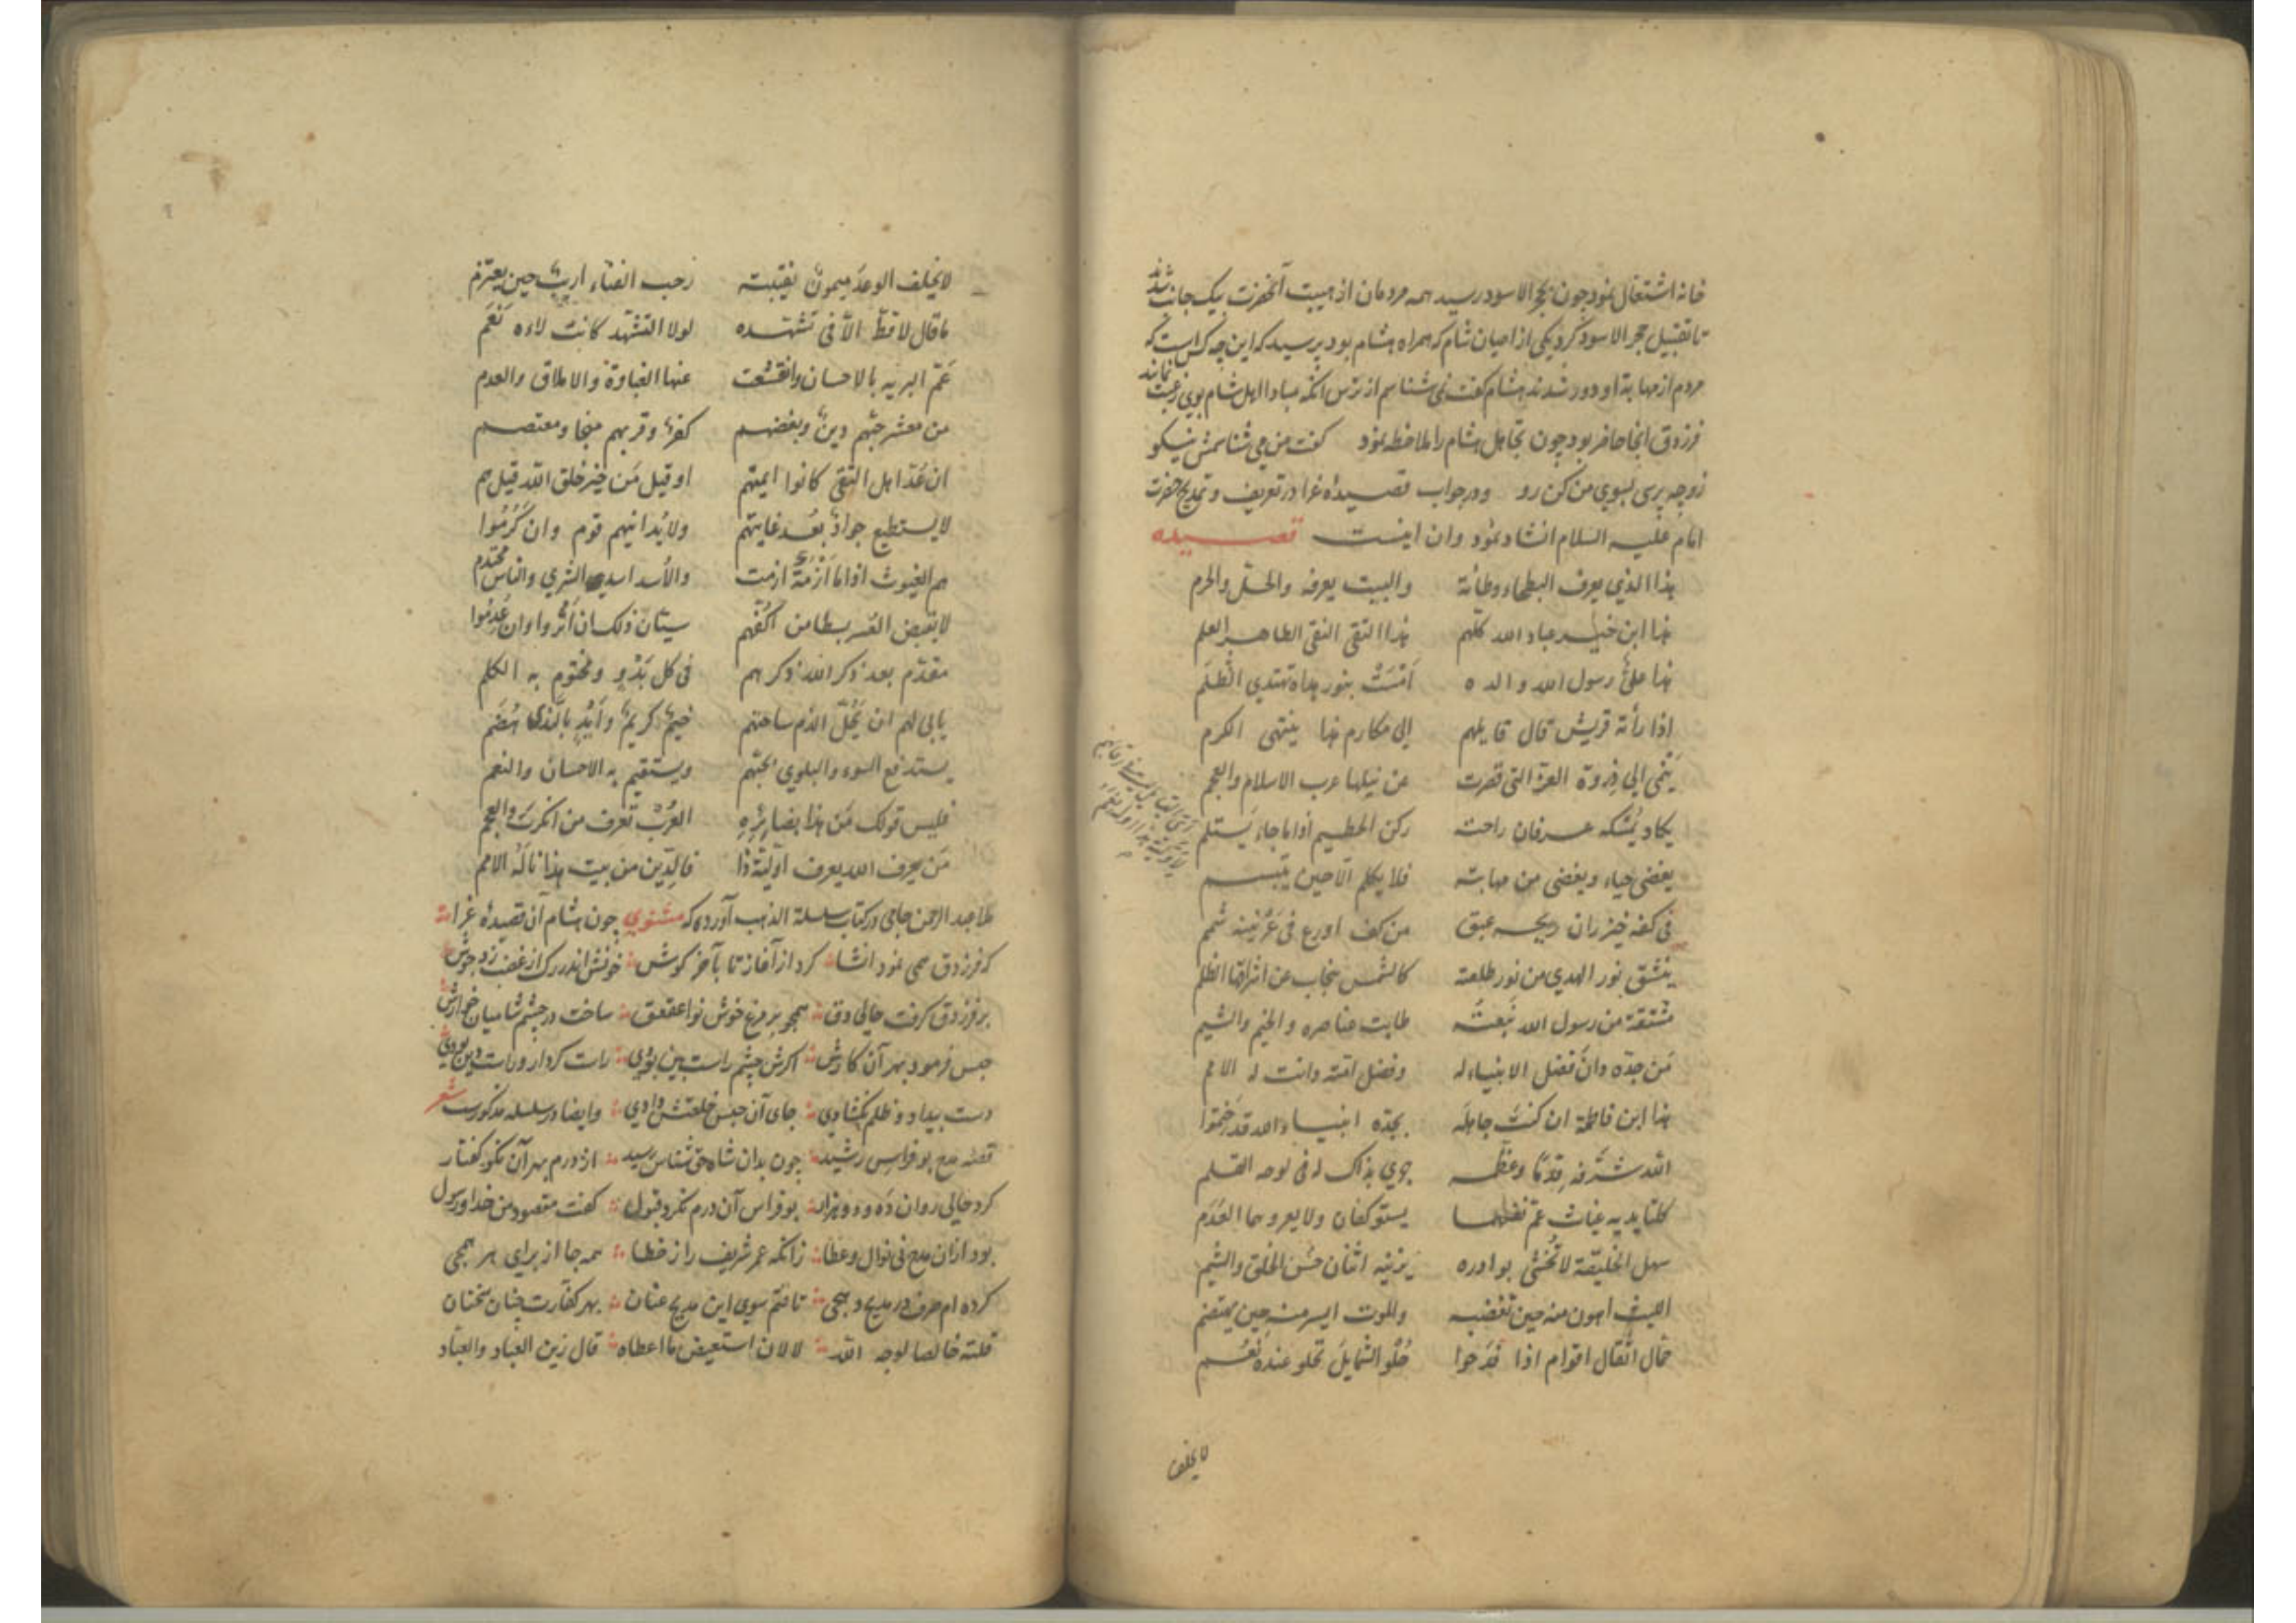 خانه اشتغال نمود چون بحجر الاسود رسید همه مردمان از هیبت آنحضرت بیک جانب شدند
تا تقبیل حجر الاسود کرد یکی از اعیان شام که همراه هشام بود پرسید که این چه کس است که
مردم از مهابة او دور شدند هشام گفت نمی شناسم از ترس آنکه مبادا اهل شام بوی رغبت نمایند
فرزدق آنجا حاضر بود چون تجاهل هشام را ملاحظه نمود گفت من می شناسمش نیکو
زو چه پرسی بسوی من کن رو و در جواب قصیدۀ غرا در تعریف و تمدیح حضرت
امام علیه السلام انشاد نمود و ان اینست قصیده
هذا الذي يعرف البطحاء وطأته والبيت يعرفه والحلّ والحرم
هذا ابن خير عباد الله كلّهم هذا التقي النقي الطاهر العلم
هذا عليٌّ رسول الله والده أمْسَتْ بنور هداه تهتدي الظُلَم
اذا رأته قريش قال قايلهم إلى مكارم هذا ينتهي الكرم
يَنمي الي ذِروة العزّ التي قصرت عن نيلها عرب الاسلام والعجم
يكاد يُمسكه عرفان راحته ركن الحطيم اذا ما جاء يَستلم
يغضي حياء ويغضي من مهابته فلا يكلم الّا حين يبتسم
في كفه خيزران ريحه عبق من كف اورع في عرنينه شمم
ينشق نور الهدي من نور طلعته كالشمس ينجاب عن اشراقها الظلم
مشتقة من رسول الله نَبعتُه طابت عناصره والخيم والشيم
مَن جدّه دان فضل الانبياء له وفضل امّته دانت له الامم
هذا ابن فاطمة ان كنتَ جاهله بجدّه انبياء الله قد خُتموا
الله شرّفه قِدْمًا وعظّمه جري بذاك له في لوحه القلم
كلتا يديه غياث عمّ نفعهما يستوكفان ولا يعروهما العَدَم
سهل الخليقة لا تُخشى بوادره يزينه اثنان حُسن الخلق والشيم
الليث اهون منه حين تغضبه والموت ايسر منه حين يهتضم
حمّال اثقال اقوام اذا فدحوا حُلو الشمايل تحلو عنده نَعَم
لا يخلف
لا يخلف الوعدَ ميمونٌ نقيبته رحب الفناء اريبٌ حين يعتزم
ما قال لا قطّ الّا في تشهّده لولا التشهّد كانت لاءه نَعَم
عَمّ البريه بالاحسان وانقشعت عنها الغباوة والاملاق والعدم
من معشر حبّهم دينٌ وبغضهم كفرٌ وقربهم منجا ومعتصم
ان عُدّ اهل التقى كانوا ايمتهم او قيل مَن خير خلق الله قيل هم
لا يستطيع جوادٌ بُعد غايتهم ولا يُدانيهم قوم وان كَرُمُوا
هم الغيوث اذا ما أَزْمَةٌ ازمت والأسد اسد الشري والناس محتدم
لا يقبض العُسر بسطا من اكفّهم سيّان ذلك ان أثروا وان عُدِموا
مقدّم بعد ذكر الله ذكرهم في كل بَدْوٍ ومختوم به الكلم
يابي لهم ان يَحُلّ الذم ساحتهم خيمٌ كريمٌ وأيْدٍ بالندى هُضُم
يستدفع السوء والبلوي بحبّهم ويستقيم به الاحسان والنعم
فليس قولك مَن هذا بضايرِه العُرْب تعرف من انكرتَ والعجم
مَن يعرف الله يعرف اوّليّة ذا فالدّين من بيت هذا ناله الامم
ملا عبد الرحمن جامی در کتاب سلسلة الذهب آورده که مثنوی چون هشام آن قصیدۀ غرا
که فرزدق همی نمود انشا کرد از آغاز تا بآخر گوش خونش اندر رگ از غضب زد جوش
بر فرزدق گرفت حالی دق همچو بر مرغ خوش نوا عقعق ساخت در چشم شامیان خوارش
حبس فرمود بهر آن کارش اگرش چشم راست بین بودی راست کردار و راست دین بودی
دست بیداد و ظلم نگشادی جای آن حبس خلعتش دادی و ایضا در سلسله مذکورست شعر
قصّه مدح بو فراس رشید چون بدان شاه حق شناس رسید از درم بهر آن نکو گفتار
کرد حالی روان ده و دو هزار بو فراس آن درم نکرد قبول گفت مقصود من خدا و رسول
بود ازان مدح نی نوال و عطا زانکه عمر شریف را ز خطا همه جا از برای هر همجی
کرده ام صرف در مدیح و هجی تافتم سوی این مدیح عنان بهر کفارت چنان سخنان
قلته خالصا لوجه الله لا لان استعیض ما اعطاه قال زین العباد والعبّاد